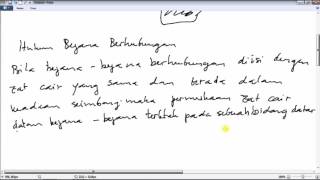 Hukum Bejana Berhubungan
Bila bejana - bejana berhubungan diisi dengan
zat cair yang sama dan berada dalam
keadaan seimbang maka permukaan zat cair
dalam bejana - bejana terletak pada sebuah bidang datar